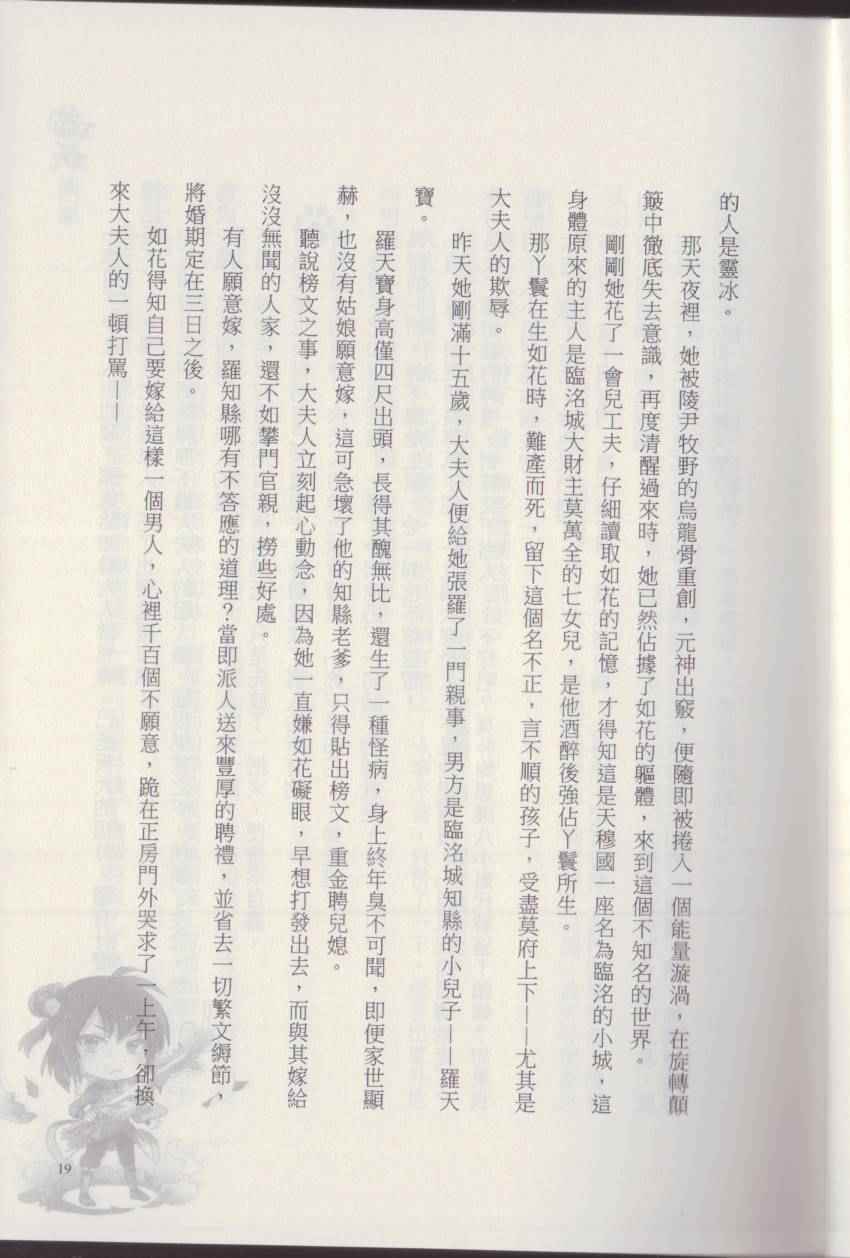 的人是靈冰。
那天夜裡，她被陵尹牧野的烏龍骨重創，元神出竅，便隨即被捲入一個能量漩渦，在旋轉顛
簸中徹底失去意識，再度清醒過來時，她已然佔據了如花的軀體，來到這個不知名的世界。
剛剛她花了一會兒工夫，仔細讀取如花的記憶，才得知這是天穆國一座名為臨洺的小城，這
身體原來的主人是臨洺城大財主莫萬全的七女兒，是他酒醉後強佔丫鬟所生。
那丫鬟在生如花時，難產而死，留下這個名不正，言不順的孩子，受盡莫府上下——尤其是
大夫人的欺辱。
昨天她剛滿十五歲，大夫人便給她張羅了一門親事，男方是臨洺城知縣的小兒子——羅天
寶。
羅天寶身高僅四尺出頭，長得其醜無比，還生了一種怪病，身上終年臭不可聞，即便家世顯
赫，也沒有姑娘願意嫁，這可急壞了他的知縣老爹，只得貼出榜文，重金聘兒媳。
聽說榜文之事，大夫人立刻起心動念，因為她一直嫌如花礙眼，早想打發出去，而與其嫁給
沒沒無聞的人家，還不如攀門官親，撈些好處。
有人願意嫁，羅知縣哪有不答應的道理？當即派人送來豐厚的聘禮，並省去一切繁文縟節，
將婚期定在三日之後。
如花得知自己要嫁給這樣一個男人，心裡千百個不願意，跪在正房門外哭求了一上午，卻換
來大夫人的一頓打罵——
19